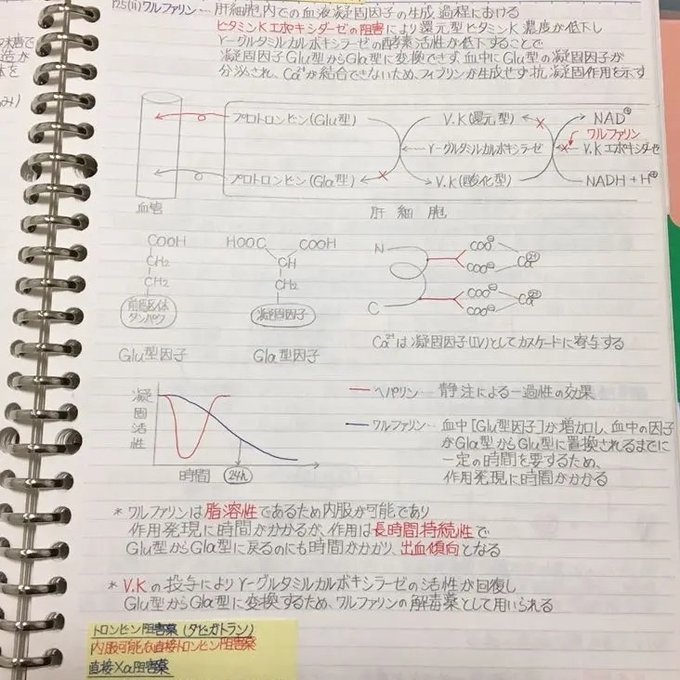 125(ii) ワルファリン… 肝細胞内での血液凝固因子の生成過程における
ビタミンKエポキシダーゼの阻害により還元型ビタミンK濃度が低下し
γ-グルタミルカルボキシラーゼの酵素活性が低下することで
凝固因子Glu型からGla型に変換できず血中にGlu型の凝固因子が
分泌され、Ca²⁺が結合できないため、フィブリンが生成せず抗凝固作用を示す
プロトロンビン(Glu型)
V.K(還元型)
NAD⁺
ワルファリン
γ-グルタミルカルボキシラーゼ
V.Kエポキシダーゼ
プロトロンビン(Gla型)
V.K(酸化型)
NADH + H⁺
血管
肝細胞
COOH
CH₂
CH₂
前駆体
タンパク
Glu型因子
HOOC
COOH
CH
CH₂
凝固因子
Gla型因子
N
C
COO⁻
COO⁻
Ca²⁺
COO⁻
COO⁻
Ca²⁺
Ca²⁺は凝固因子(IV)としてカスケードに寄与する
凝固活性
時間
24h
ヘパリン… 静注による一過性の効果
ワルファリン… 血中[Glu型因子]が増加し、血中の因子
がGla型からGlu型に置換されるまでに
一定の時間を要するため、
作用発現に時間がかかる
* ワルファリンは脂溶性であるため内服が可能であり
作用発現に時間がかかるが、作用は長時間持続性で
Glu型からGla型に戻るのにも時間がかかり、出血傾向となる
* V.Kの投与によりγ-グルタミルカルボキシラーゼの活性が回復し
Glu型からGla型に変換するため、ワルファリンの解毒薬として用いられる
トロンビン阻害薬(ダビガトラン)
内服可能な直接トロンビン阻害薬
直接Xa阻害薬